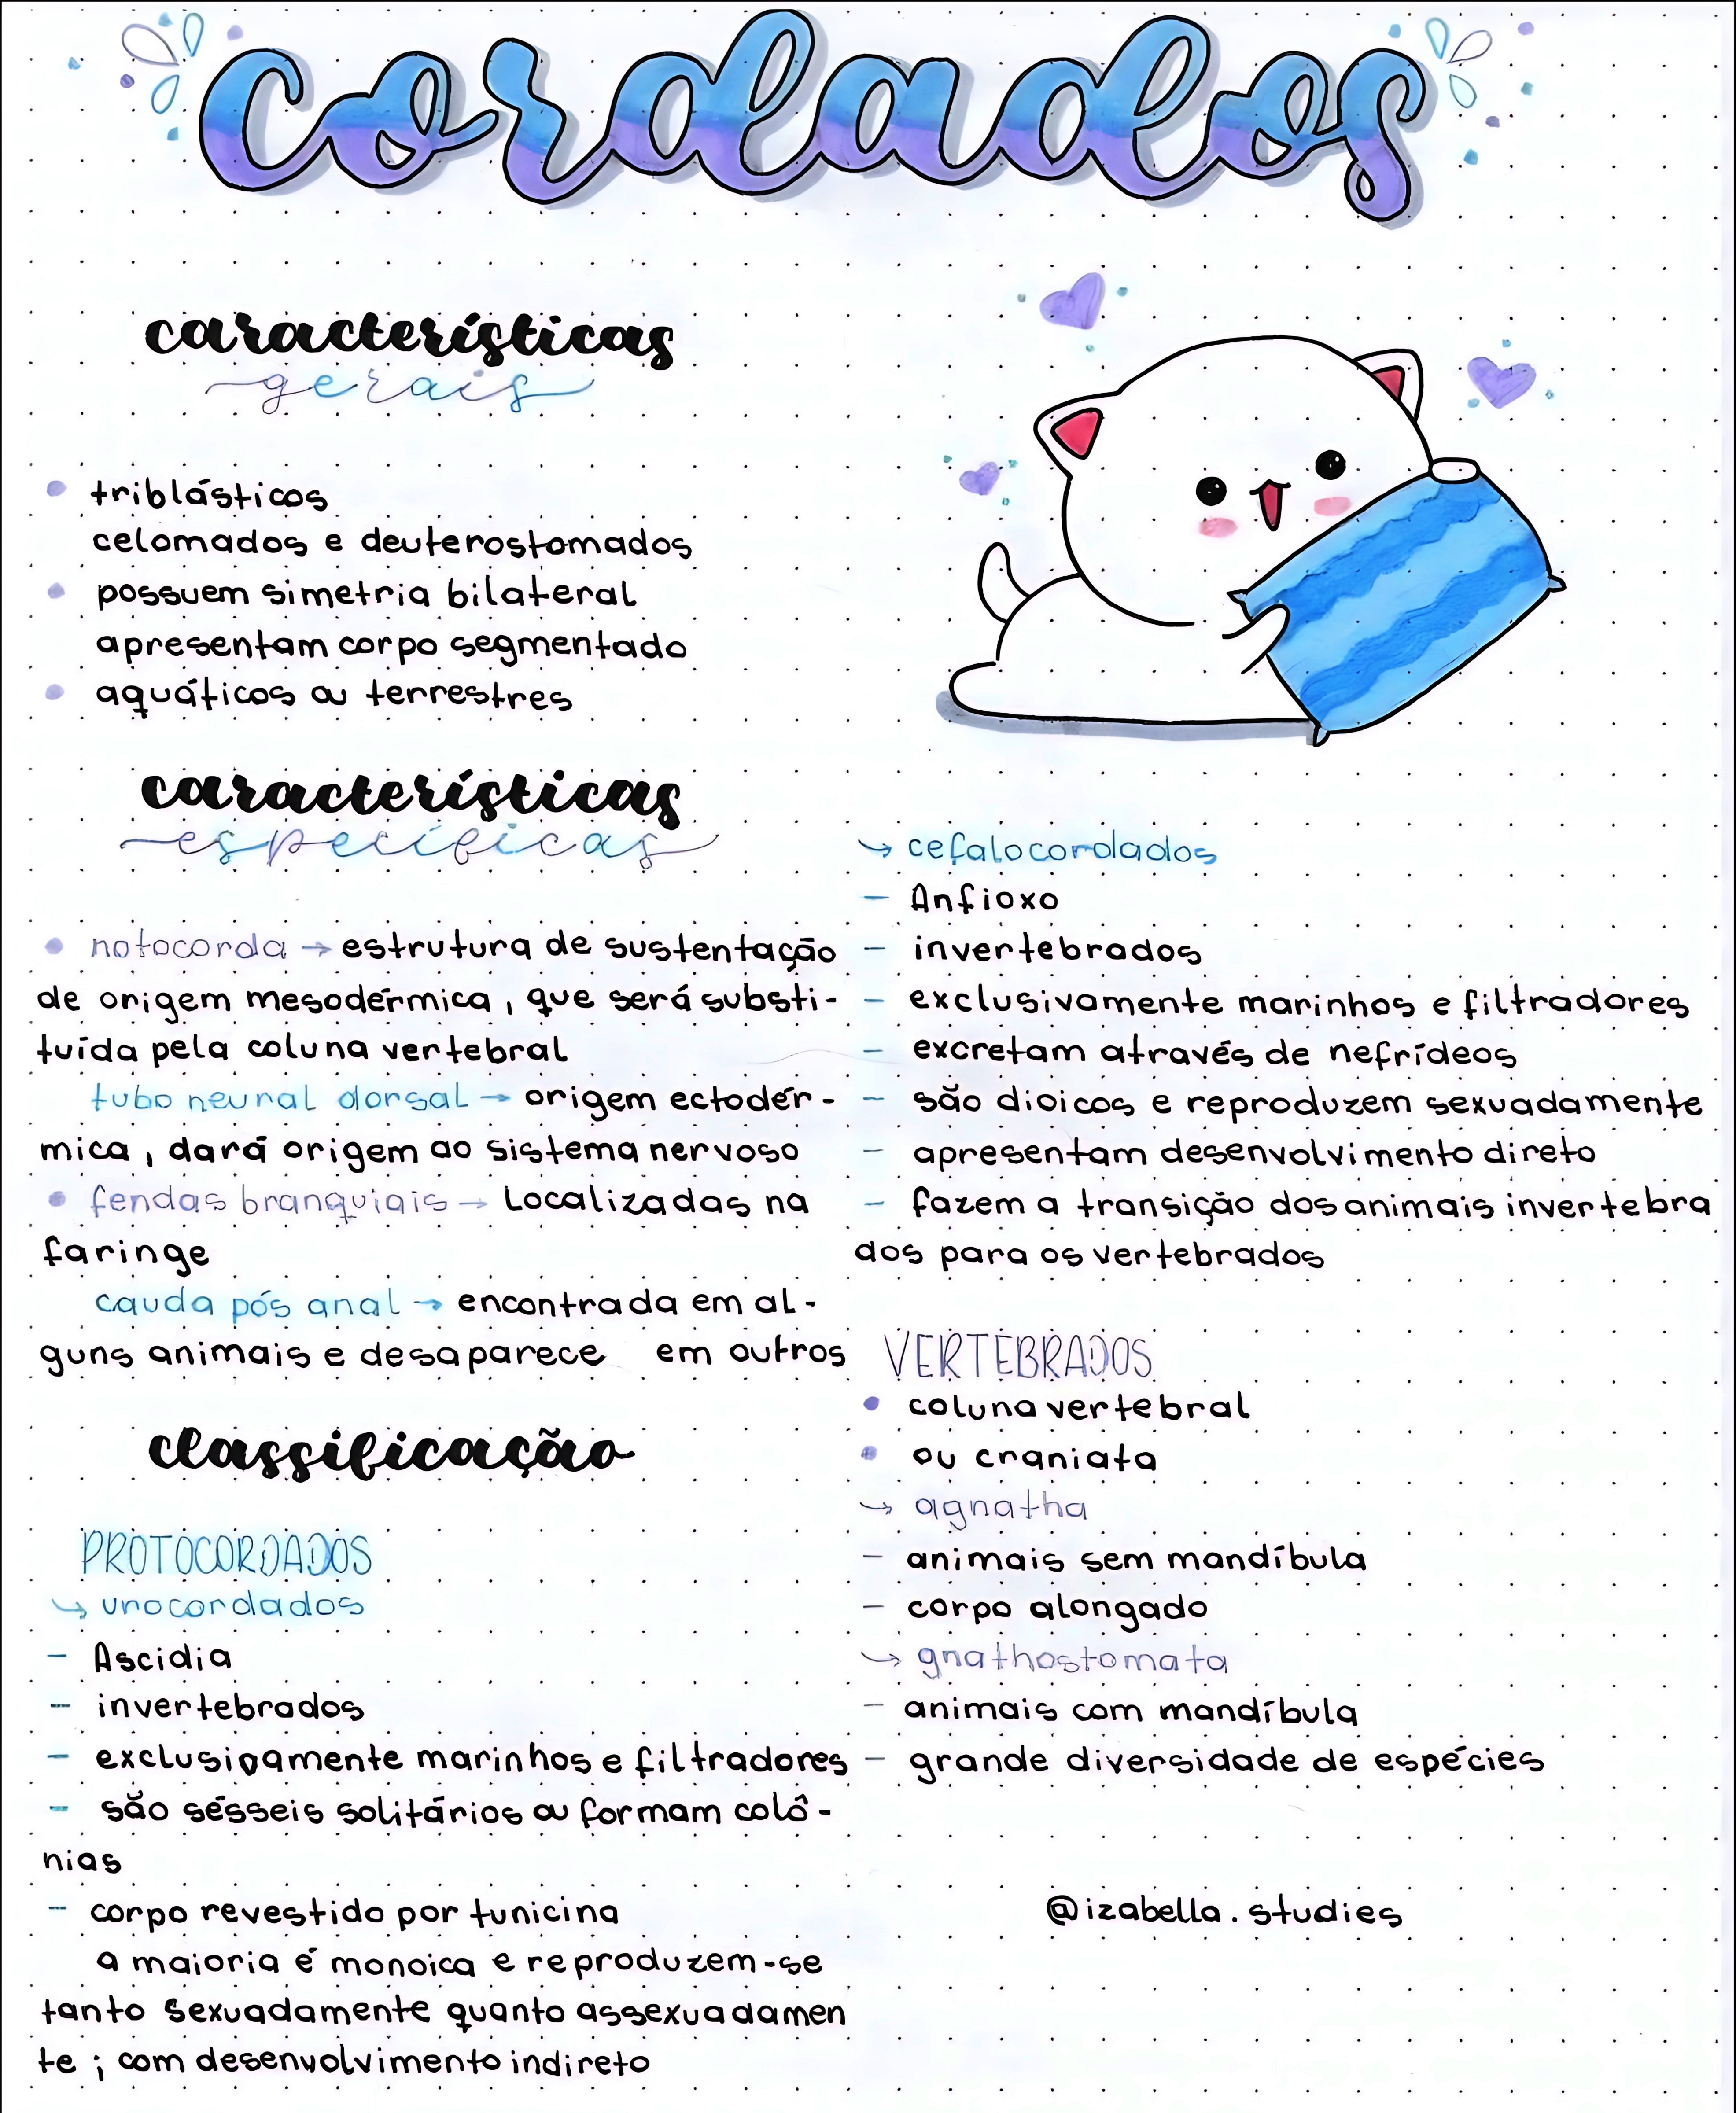 cordados
características
gerais
• triblásticos
celomados e deuterostomados
• possuem simetria bilateral
apresentam corpo segmentado
• aquáticos ou terrestres
características
específicas
• notocorda → estrutura de sustentação
de origem mesodérmica, que será substi-
tuída pela coluna vertebral
tubo neural dorsal → origem ectodér-
mica, dará origem ao sistema nervoso
• fendas branquiais → Localizadas na
faringe
cauda pós anal → encontrada em al-
guns animais e desaparece em outros
classificação
PROTOCORDADOS
↳ urocordados
- Ascidia
- invertebrados
- exclusivamente marinhos e filtradores
- são sésseis solitários ou formam colô-
nias
- corpo revestido por tunicina
a maioria é monoica e reproduzem-se
tanto sexuadamente quanto assexuadamen
te ; com desenvolvimento indireto
↳ cefalocordados
- Anfioxo
- invertebrados
- exclusivamente marinhos e filtradores
- excretam através de nefrídeos
- são dioicos e reproduzem sexuadamente
- apresentam desenvolvimento direto
- fazem a transição dos animais invertebra
dos para os vertebrados
VERTEBRADOS
• coluna vertebral
• ou craniata
↳ agnatha
- animais sem mandíbula
- corpo alongado
↳ gnathostomata
- animais com mandíbula
- grande diversidade de espécies
@izabella.studies